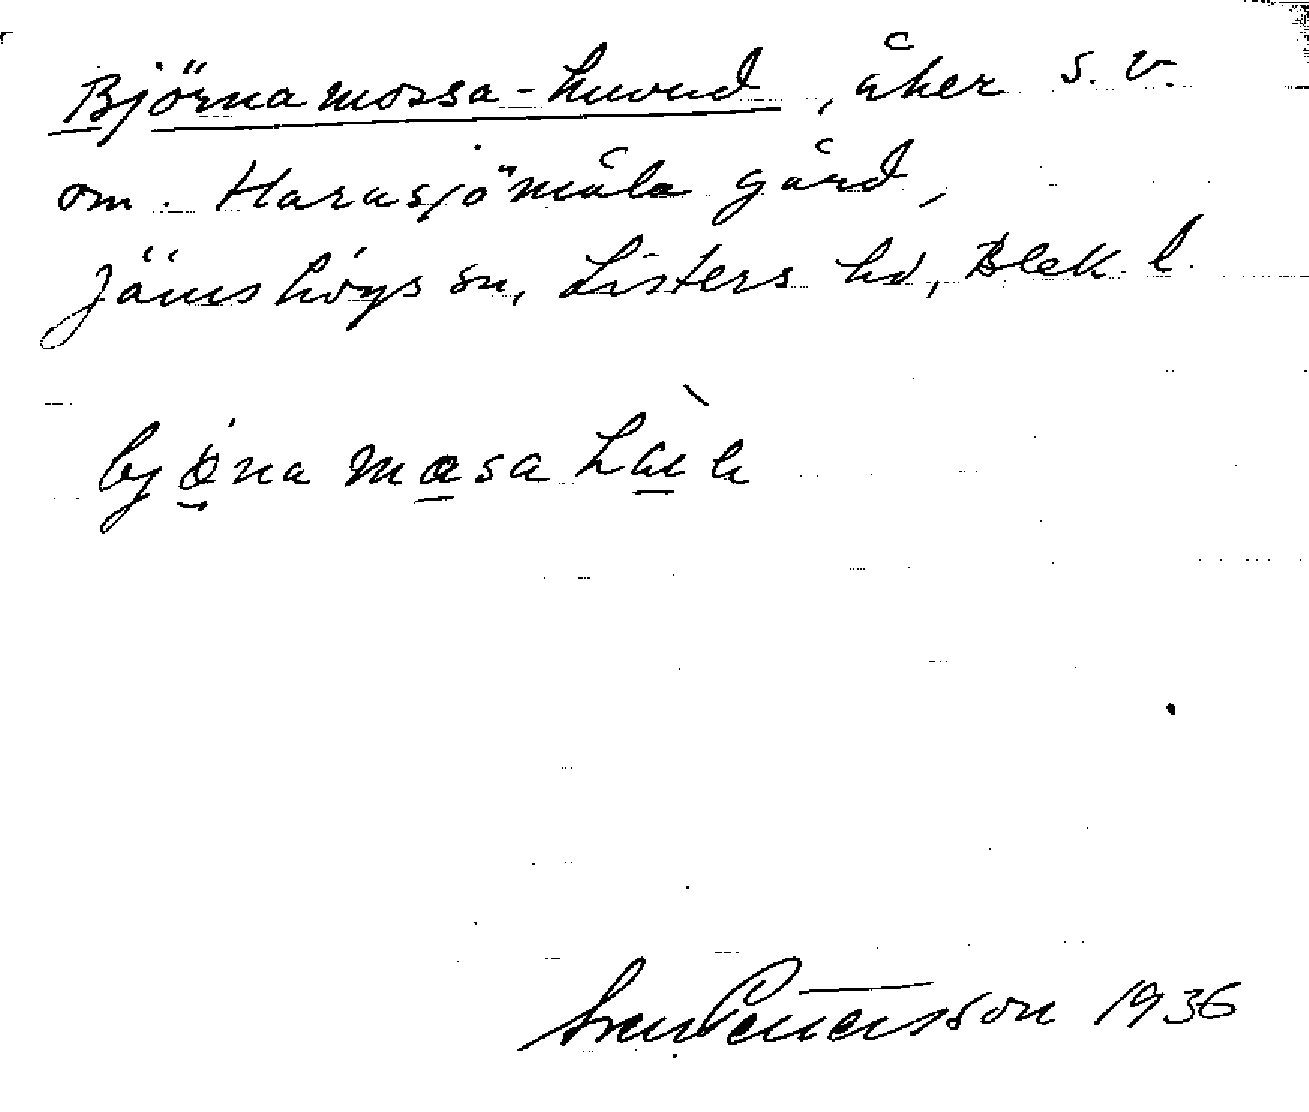 Björnamossa-huvud, åker s.v.
om Harasjömåla gård,
Jämshögs sn, Listers hd, Blek. l.
Sven Pettersson 1936